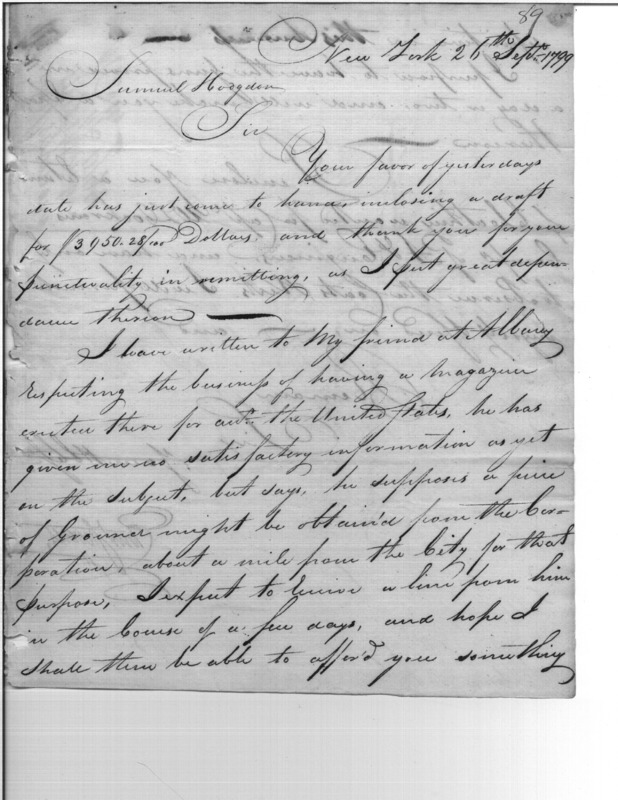 89
New York 26th Septr. 1799
Samuel Hodgdon
Sir
Your favor of yesterdays
date has just come to hand inclosing a draft
for $3950.28/100 Dollars and thank you for your
punctuality in remitting, as I put great depen-
dance thereon
I have written to my friend at Albany
respecting the business of having a magazine
erected there for acct. the United States, he has
given me no satisfactory information as yet
on the subject, but says, he supposes a piece
of Ground might be obtain'd from the Cor-
poration about a mile from the City for that
purpose, I expect to receive a line from him
in the Course of a few days, and hope I
shall then be able to afford you something